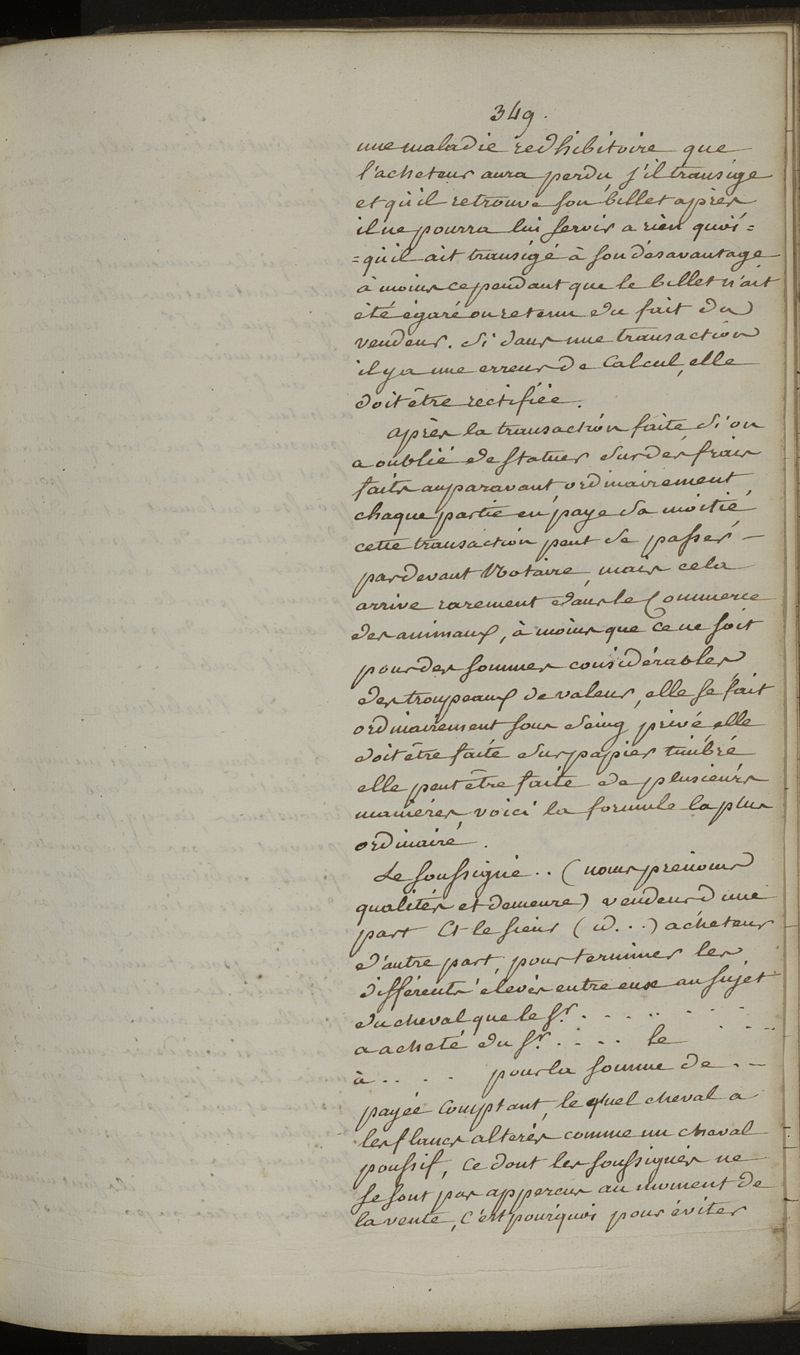 349.
une maladie redhibitoire que
l'acheteur aura perdu s'il transige
et qu'il retrouve son billet après
il ne pourra lui servir a rien quoi=
=qu'il ait transigé à son désavantage
à moins cependant que le billet n'ait
été égaré ou retenu du fait du
vendeur. Si dans une transaction
il y a une erreur de Calcul, elle
doit être rectifiée.
après la transaction faite si on
a oublié de statuer sur des frais
faits auparavant ordinairement
chaque partie en paye sa moitié
cette transaction peut se passer -
pardevant Notaire, mais cela
arrive rarement dans le Commerce
des animaux, à moins que ce ne soit
pour des sommes considérables,
des troupeaux de valeur, elle se fait
ordinairement sous seing privé, elle
doit être faite sur papier timbré
elle peut être faite de plusieurs
manières, voici la formule la plus
ordinaire.
Le soussigné .. (noms prenoms
qualités et demeure) vendeur d'une
part Et le sieur (id...) acheteur
d'autre part, pour terminer les
différents élevés entre eux au sujet
du cheval que le Sr. . . . . . . .
a acheté du Sr. . . . . le . . .
à . . . . pour la somme de . -
payée Comptant, le quel cheval a
les flancs altérés comme un cheval
poussif, Ce dont les soussignés ne
se sont pas apperçus au moment de
la vente, C'est pourquoi pour éviter